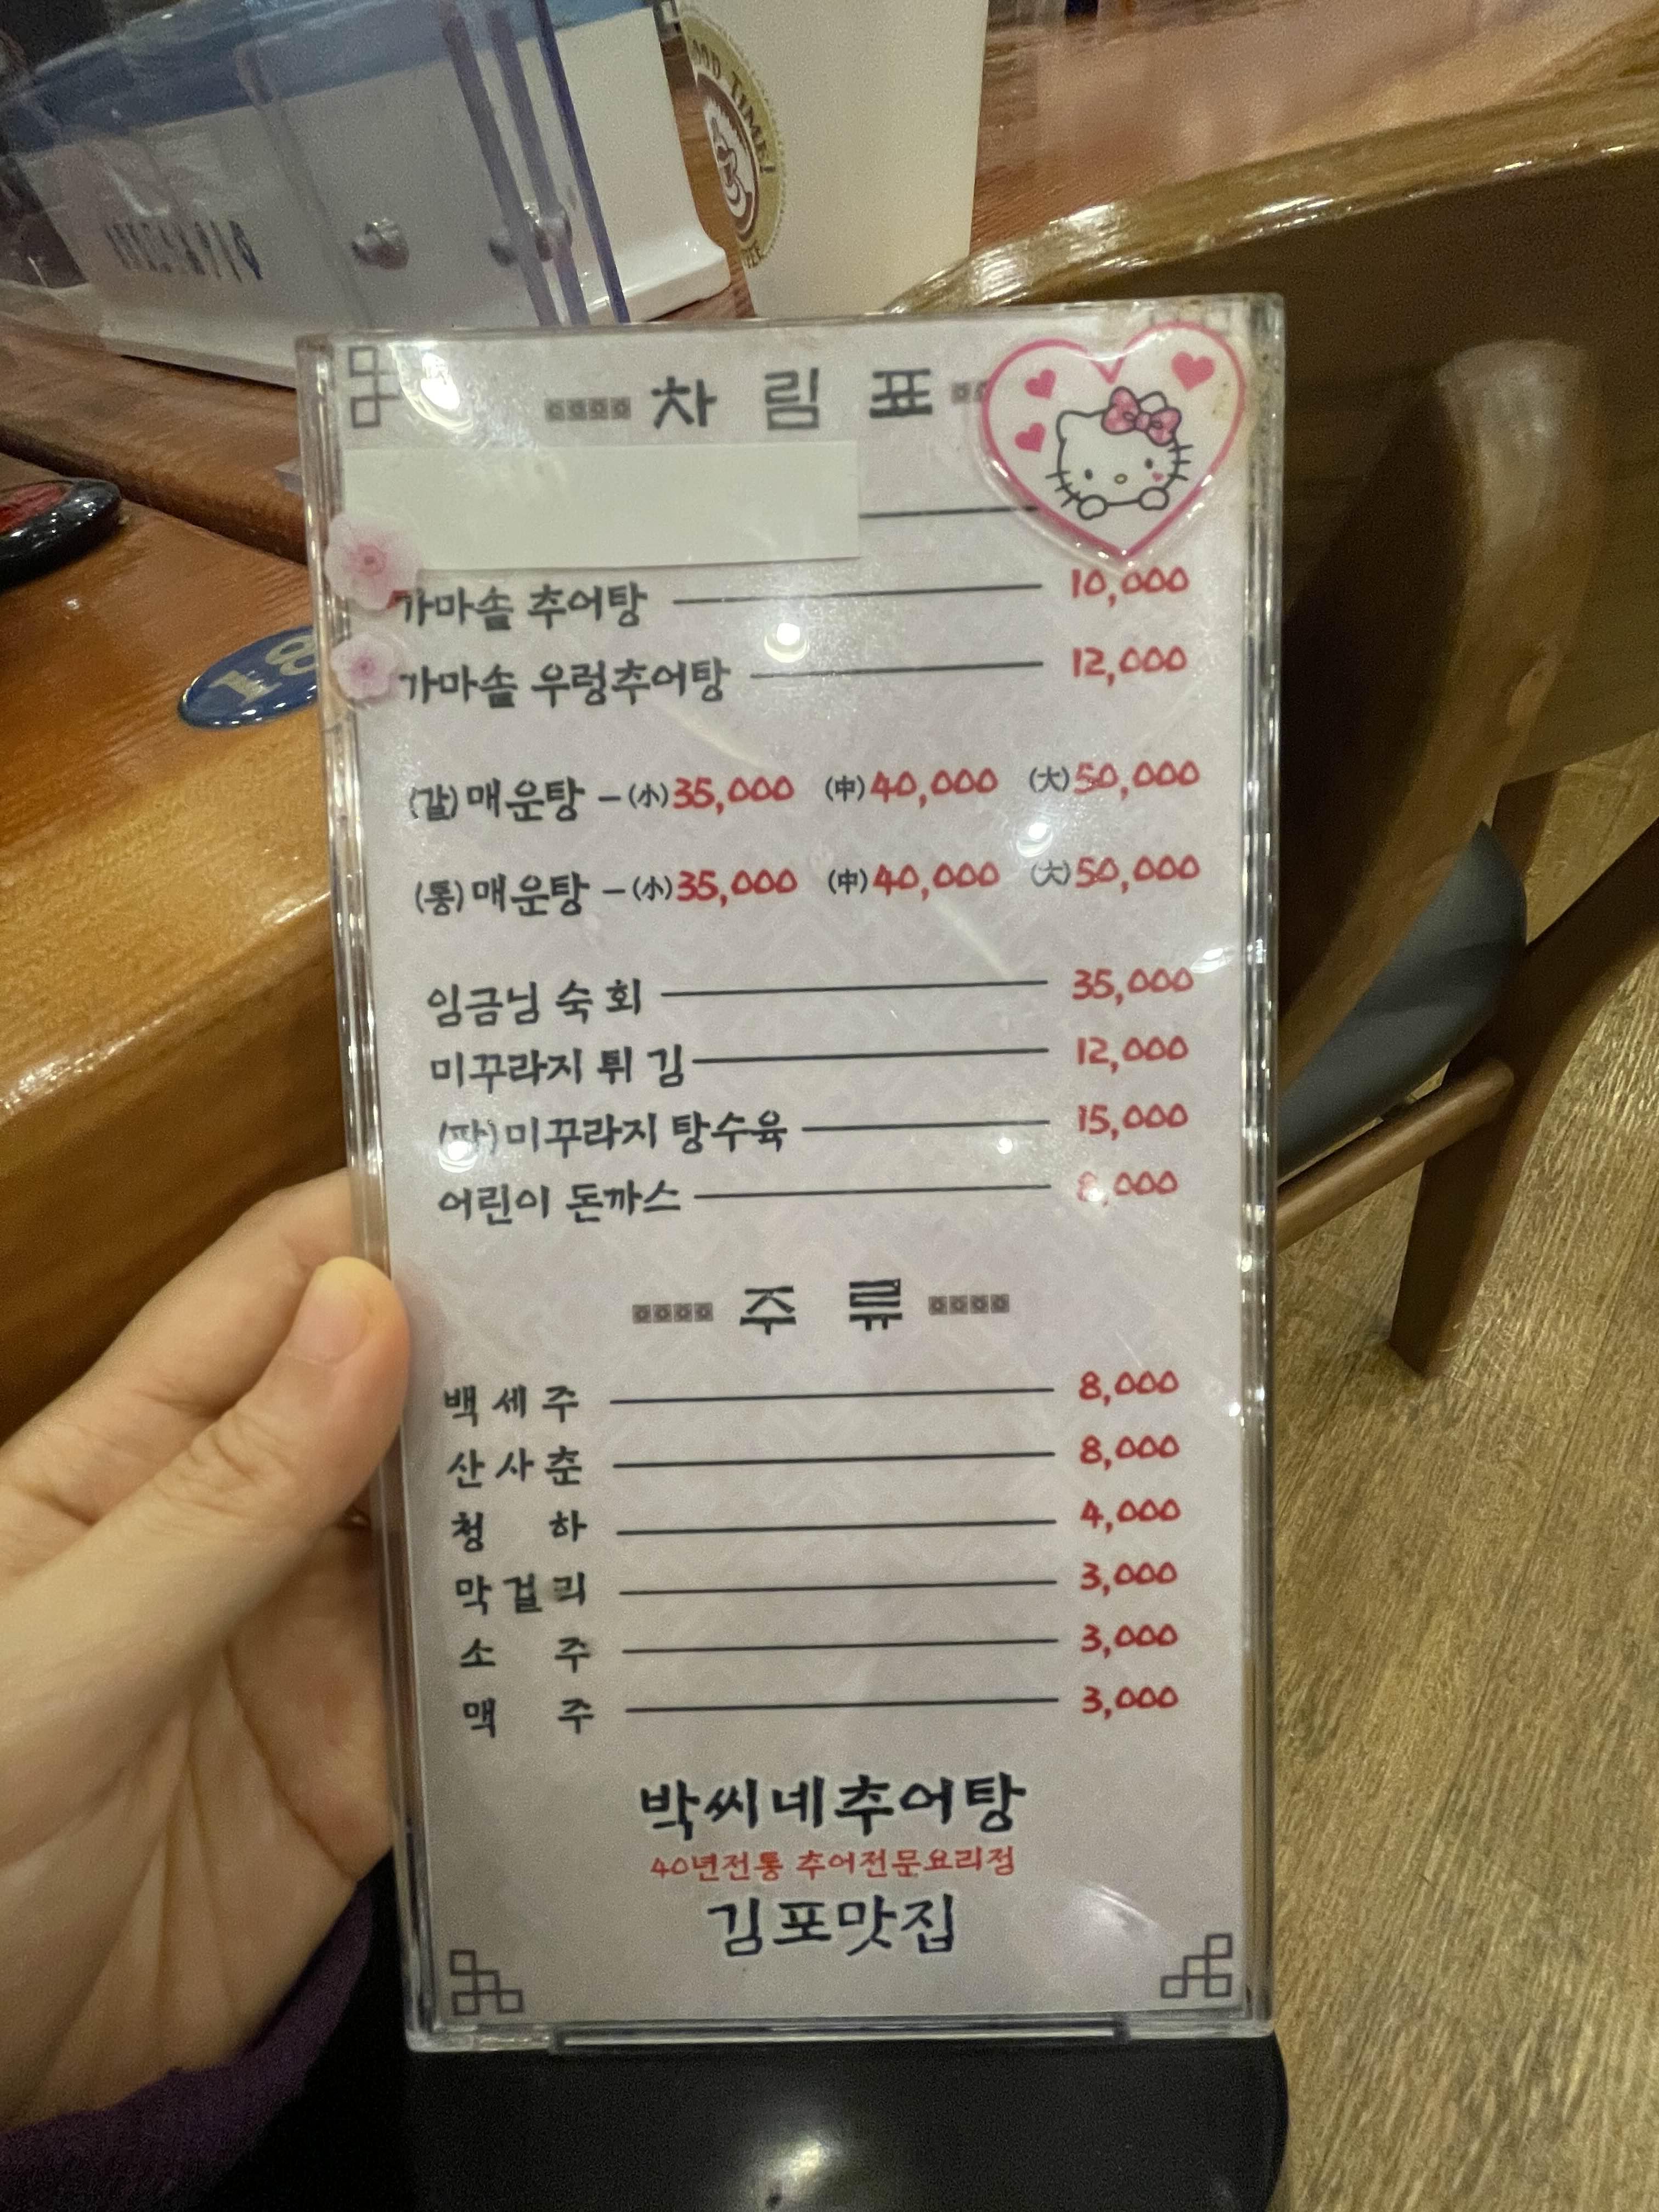 OOD TIME!
18
차림표
가마솥 추어탕 10,000
가마솥 우렁추어탕 12,000
(갈)매운탕 - (小)35,000 (中)40,000 (大)50,000
(통)매운탕 - (小)35,000 (中)40,000 (大)50,000
임금님 숙회 35,000
미꾸라지 튀김 12,000
(퓨)미꾸라지 탕수육 15,000
어린이 돈까스 8,000
주류
백세주 8,000
산사춘 8,000
청하 4,000
막걸리 3,000
소주 3,000
맥주 3,000
박씨네추어탕
40년전통 추어전문요리점
김포맛집